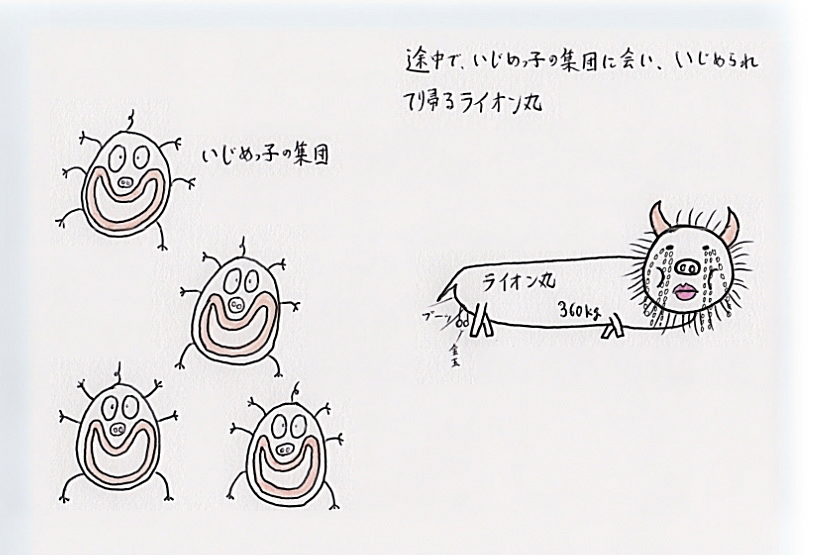 途中で、いじめっ子の集団に会い、いじめられ
て帰るライオン丸
いじめっ子の集団
ライオン丸
360kg
ブーン
金玉